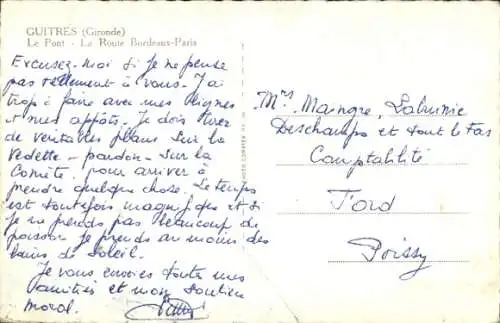 GUITRES (Gironde)
Le Pont - La Route Bordeaux-Paris
Excusez-moi si je ne pense
pas tellement à vous - J'ai
trop à faire avec mes lignes
et mes appâts - Je dois tirer
de veritables plans sur la
vedette - pardon - sur la
Comète, pour arriver à
prendre quelque chose. Le temps
est toutefois magnifique et si
je ne prends pas beaucoup de
poisson je prends au moins des
bains de Soleil.
Je vous envoies toutes mes
amitiés et mon soutien
moral.
Mrs Maingre, Labumie
Deschamps et tout le Fas
Comptabilité
Ford
Poissy